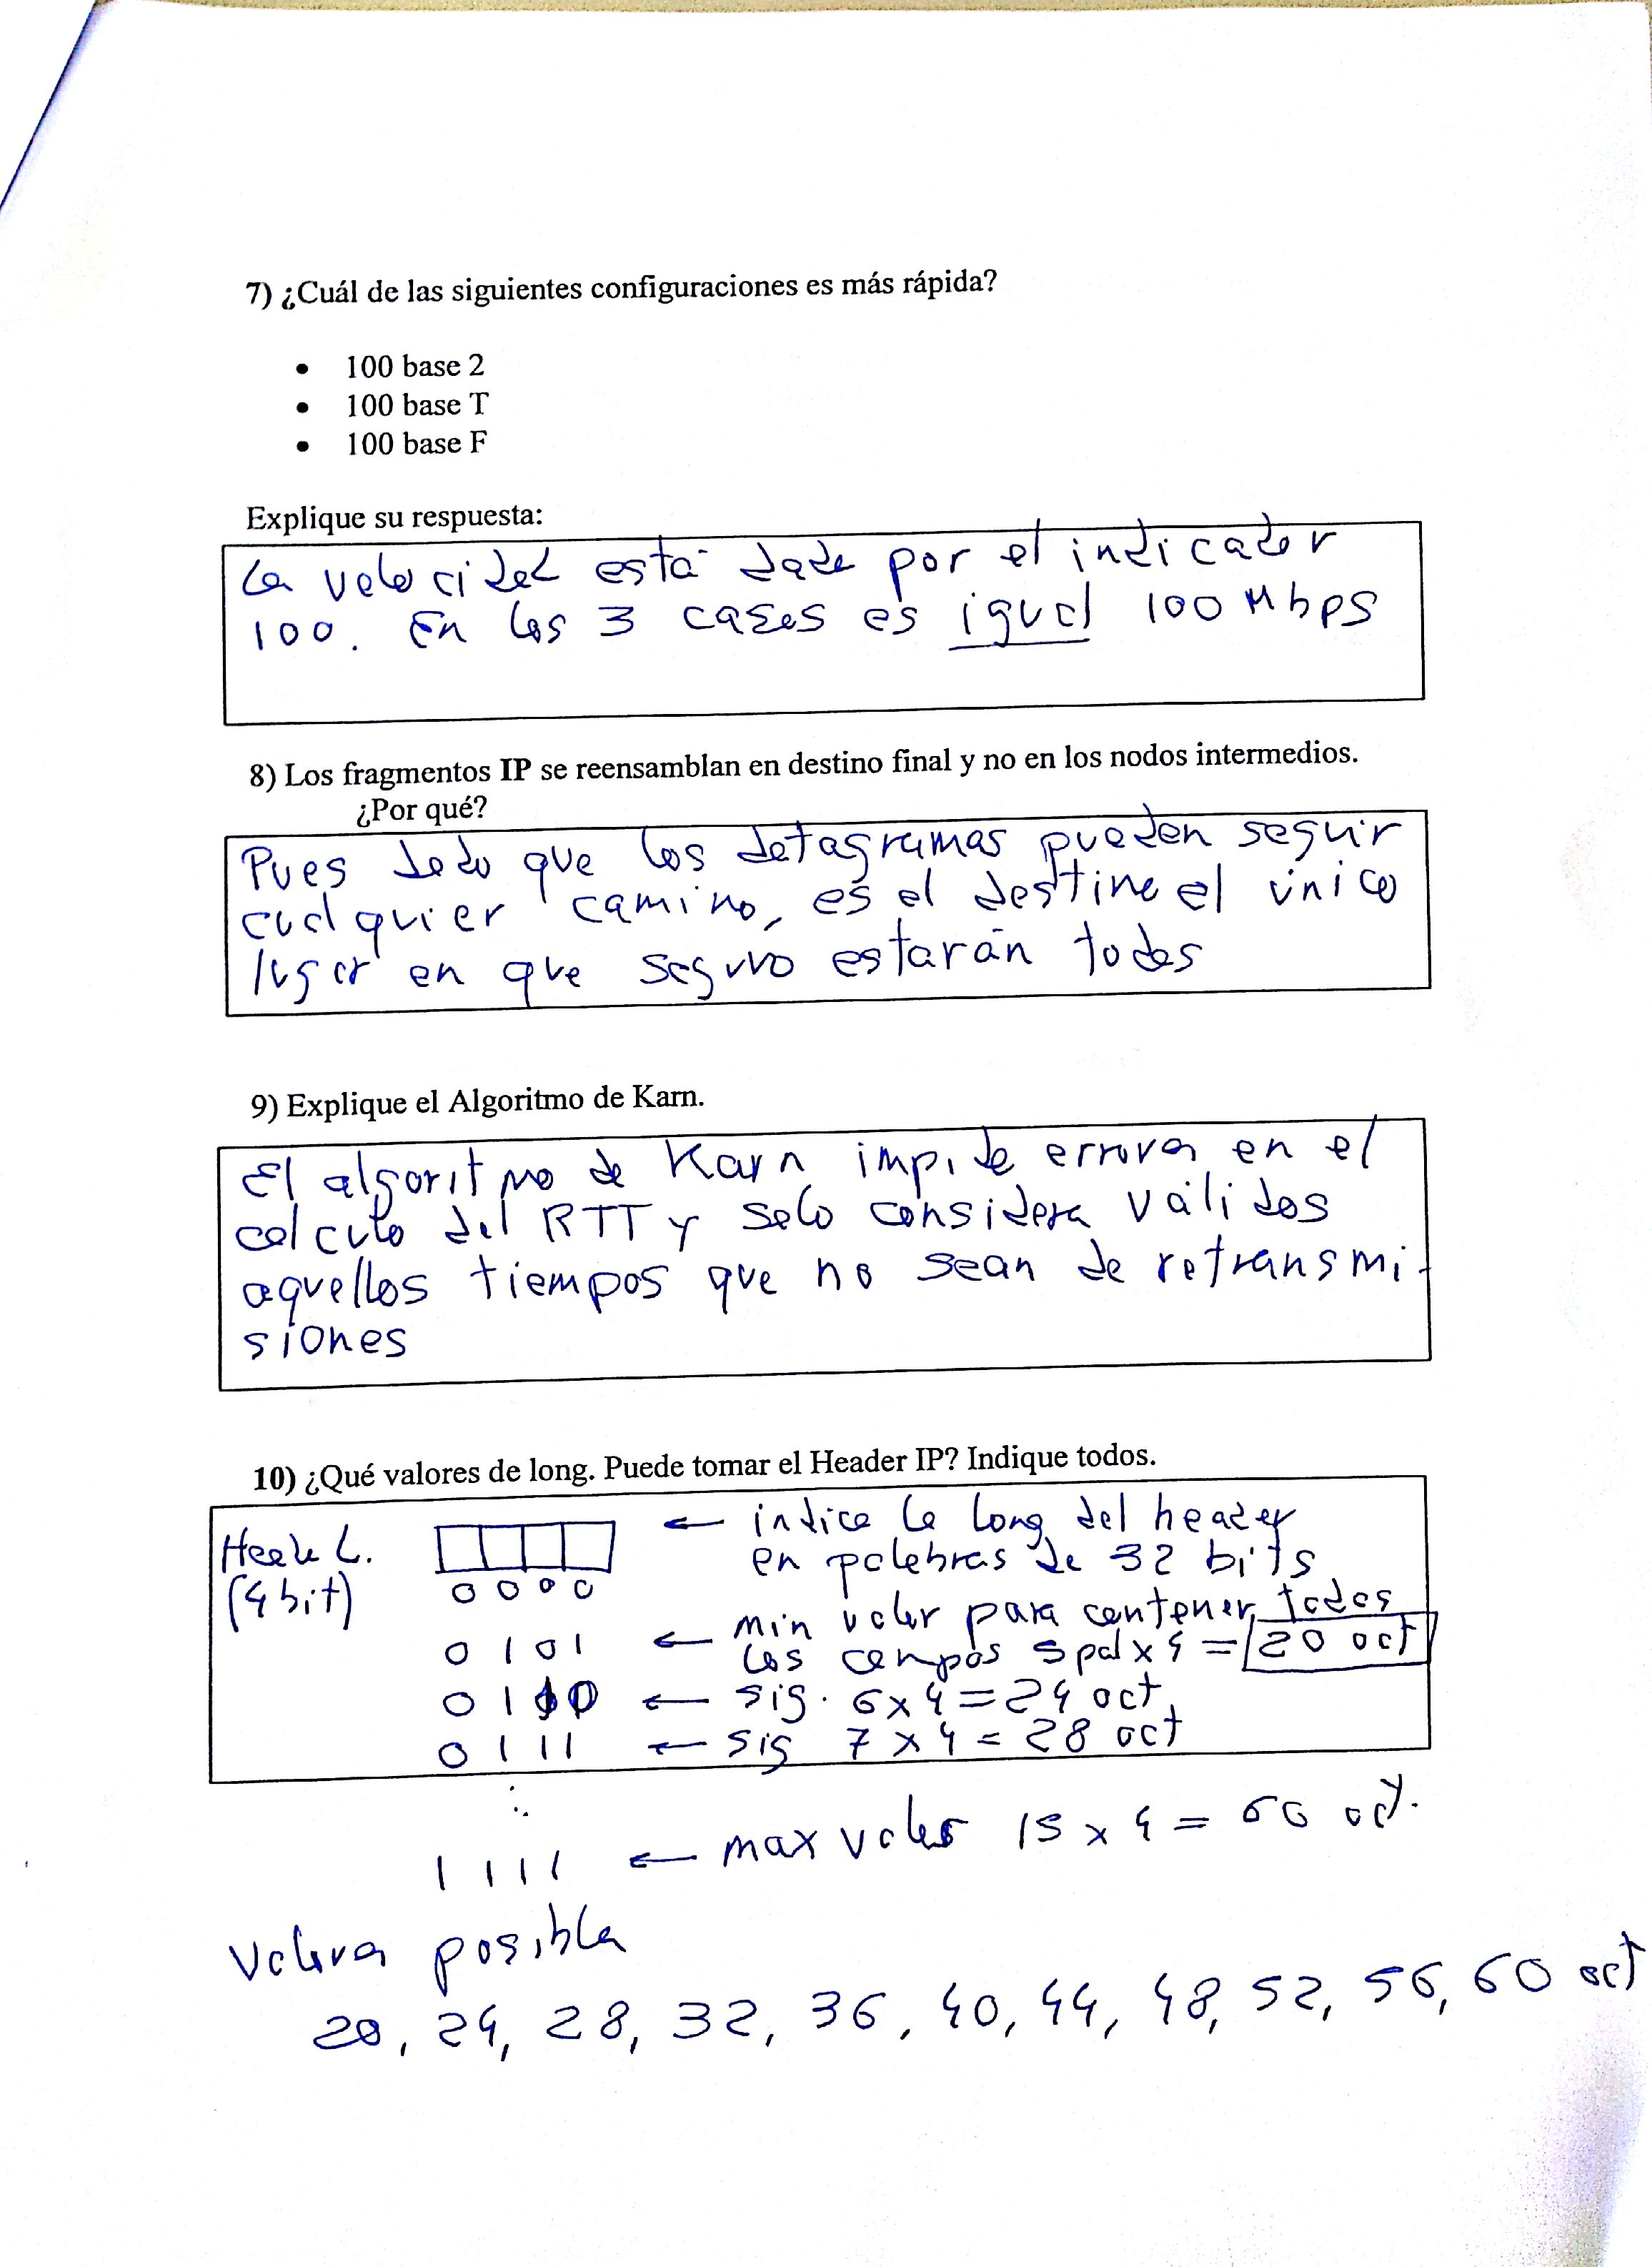 7) ¿Cuál de las siguientes configuraciones es más rápida?
• 100 base 2
• 100 base T
• 100 base F
Explique su respuesta:
La velocidad está dada por el indicador
100. En los 3 casos es igual 100 Mbps
8) Los fragmentos IP se reensamblan en destino final y no en los nodos intermedios.
¿Por qué?
Pues dado que los datagramas pueden seguir
cualquier camino, es el destino el único
lugar en que seguro estarán todos
9) Explique el Algoritmo de Karn.
El algoritmo de Karn impide errores en el
calculo del RTT y solo considera válidos
aquellos tiempos que no sean de retransmi-
siones
10) ¿Qué valores de long. Puede tomar el Header IP? Indique todos.
← indica la long del header
Heade L.
en palabras de 32 bits
(4 bit)
0 0 0 0
min valor para contener todos
0 1 0 1 ← los campos 5 pal x 4 = 20 oct
0 1 1 0 ← sig. 6 x 4 = 24 oct,
0 1 1 1 ← sig 7 x 4 = 28 oct
1 1 1 1 ← max valor 15 x 4 = 60 oct.
Valores posibles
20, 24, 28, 32, 36, 40, 44, 48, 52, 56, 60 oct